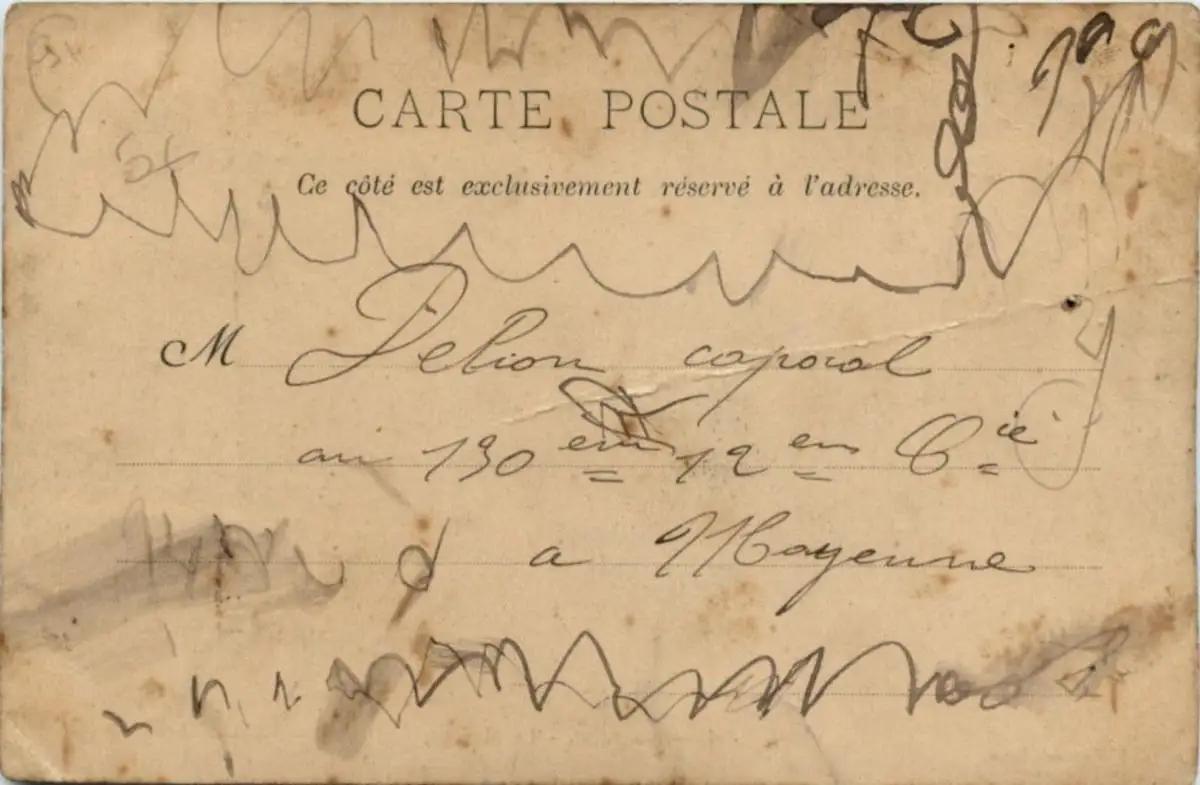 CARTE POSTALE
Ce côté est exclusivement réservé à l'adresse.
M Pelion caporal
au 130 em 12 em Cie
a Mayenne